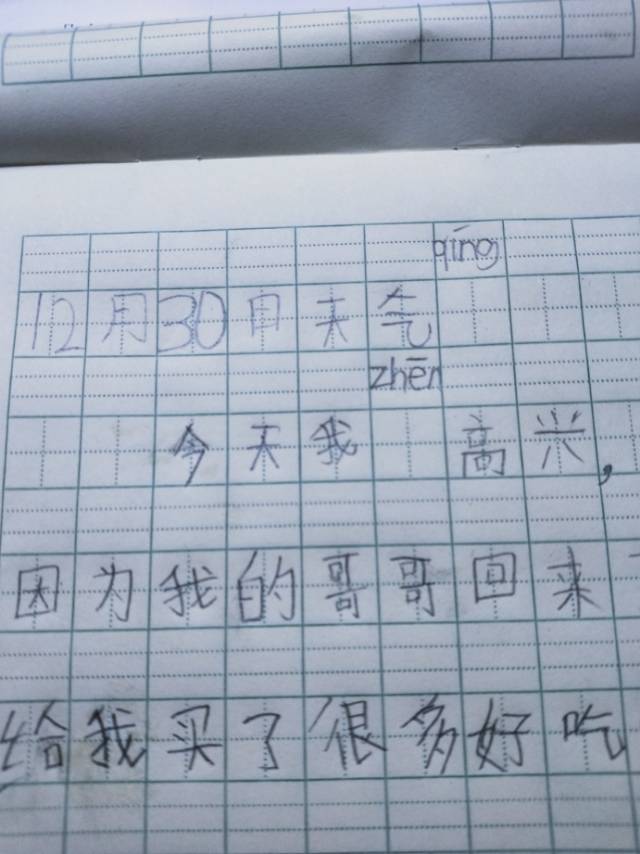 qíng
12月30日天气
zhēn
今天我 高兴，
因为我的哥哥回来
给我买了很多好吃